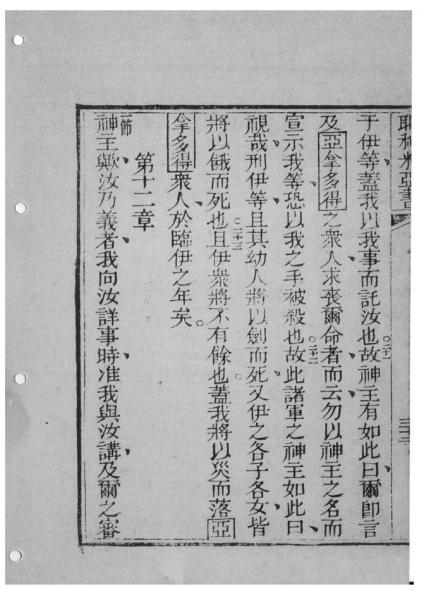 耶利米亞書 三十三
于伊等蓋我以我事而託汝也○二十一故神主有如此曰爾即言
及亞拿多得之衆人求喪爾命者而云勿以神主之名而
宣示我等恐以我之手被殺也○二十二故此諸軍之神主如此曰
視哉刑伊等且其幼人將以劍而死又伊之各子各女皆
將以餓而死也○二十三且伊衆將不有餘也蓋我將以災而落亞
拿多得衆人於臨伊之年矣。
第十二章
一節神主歟汝乃義者我向汝詳事時准我與汝講及爾之審